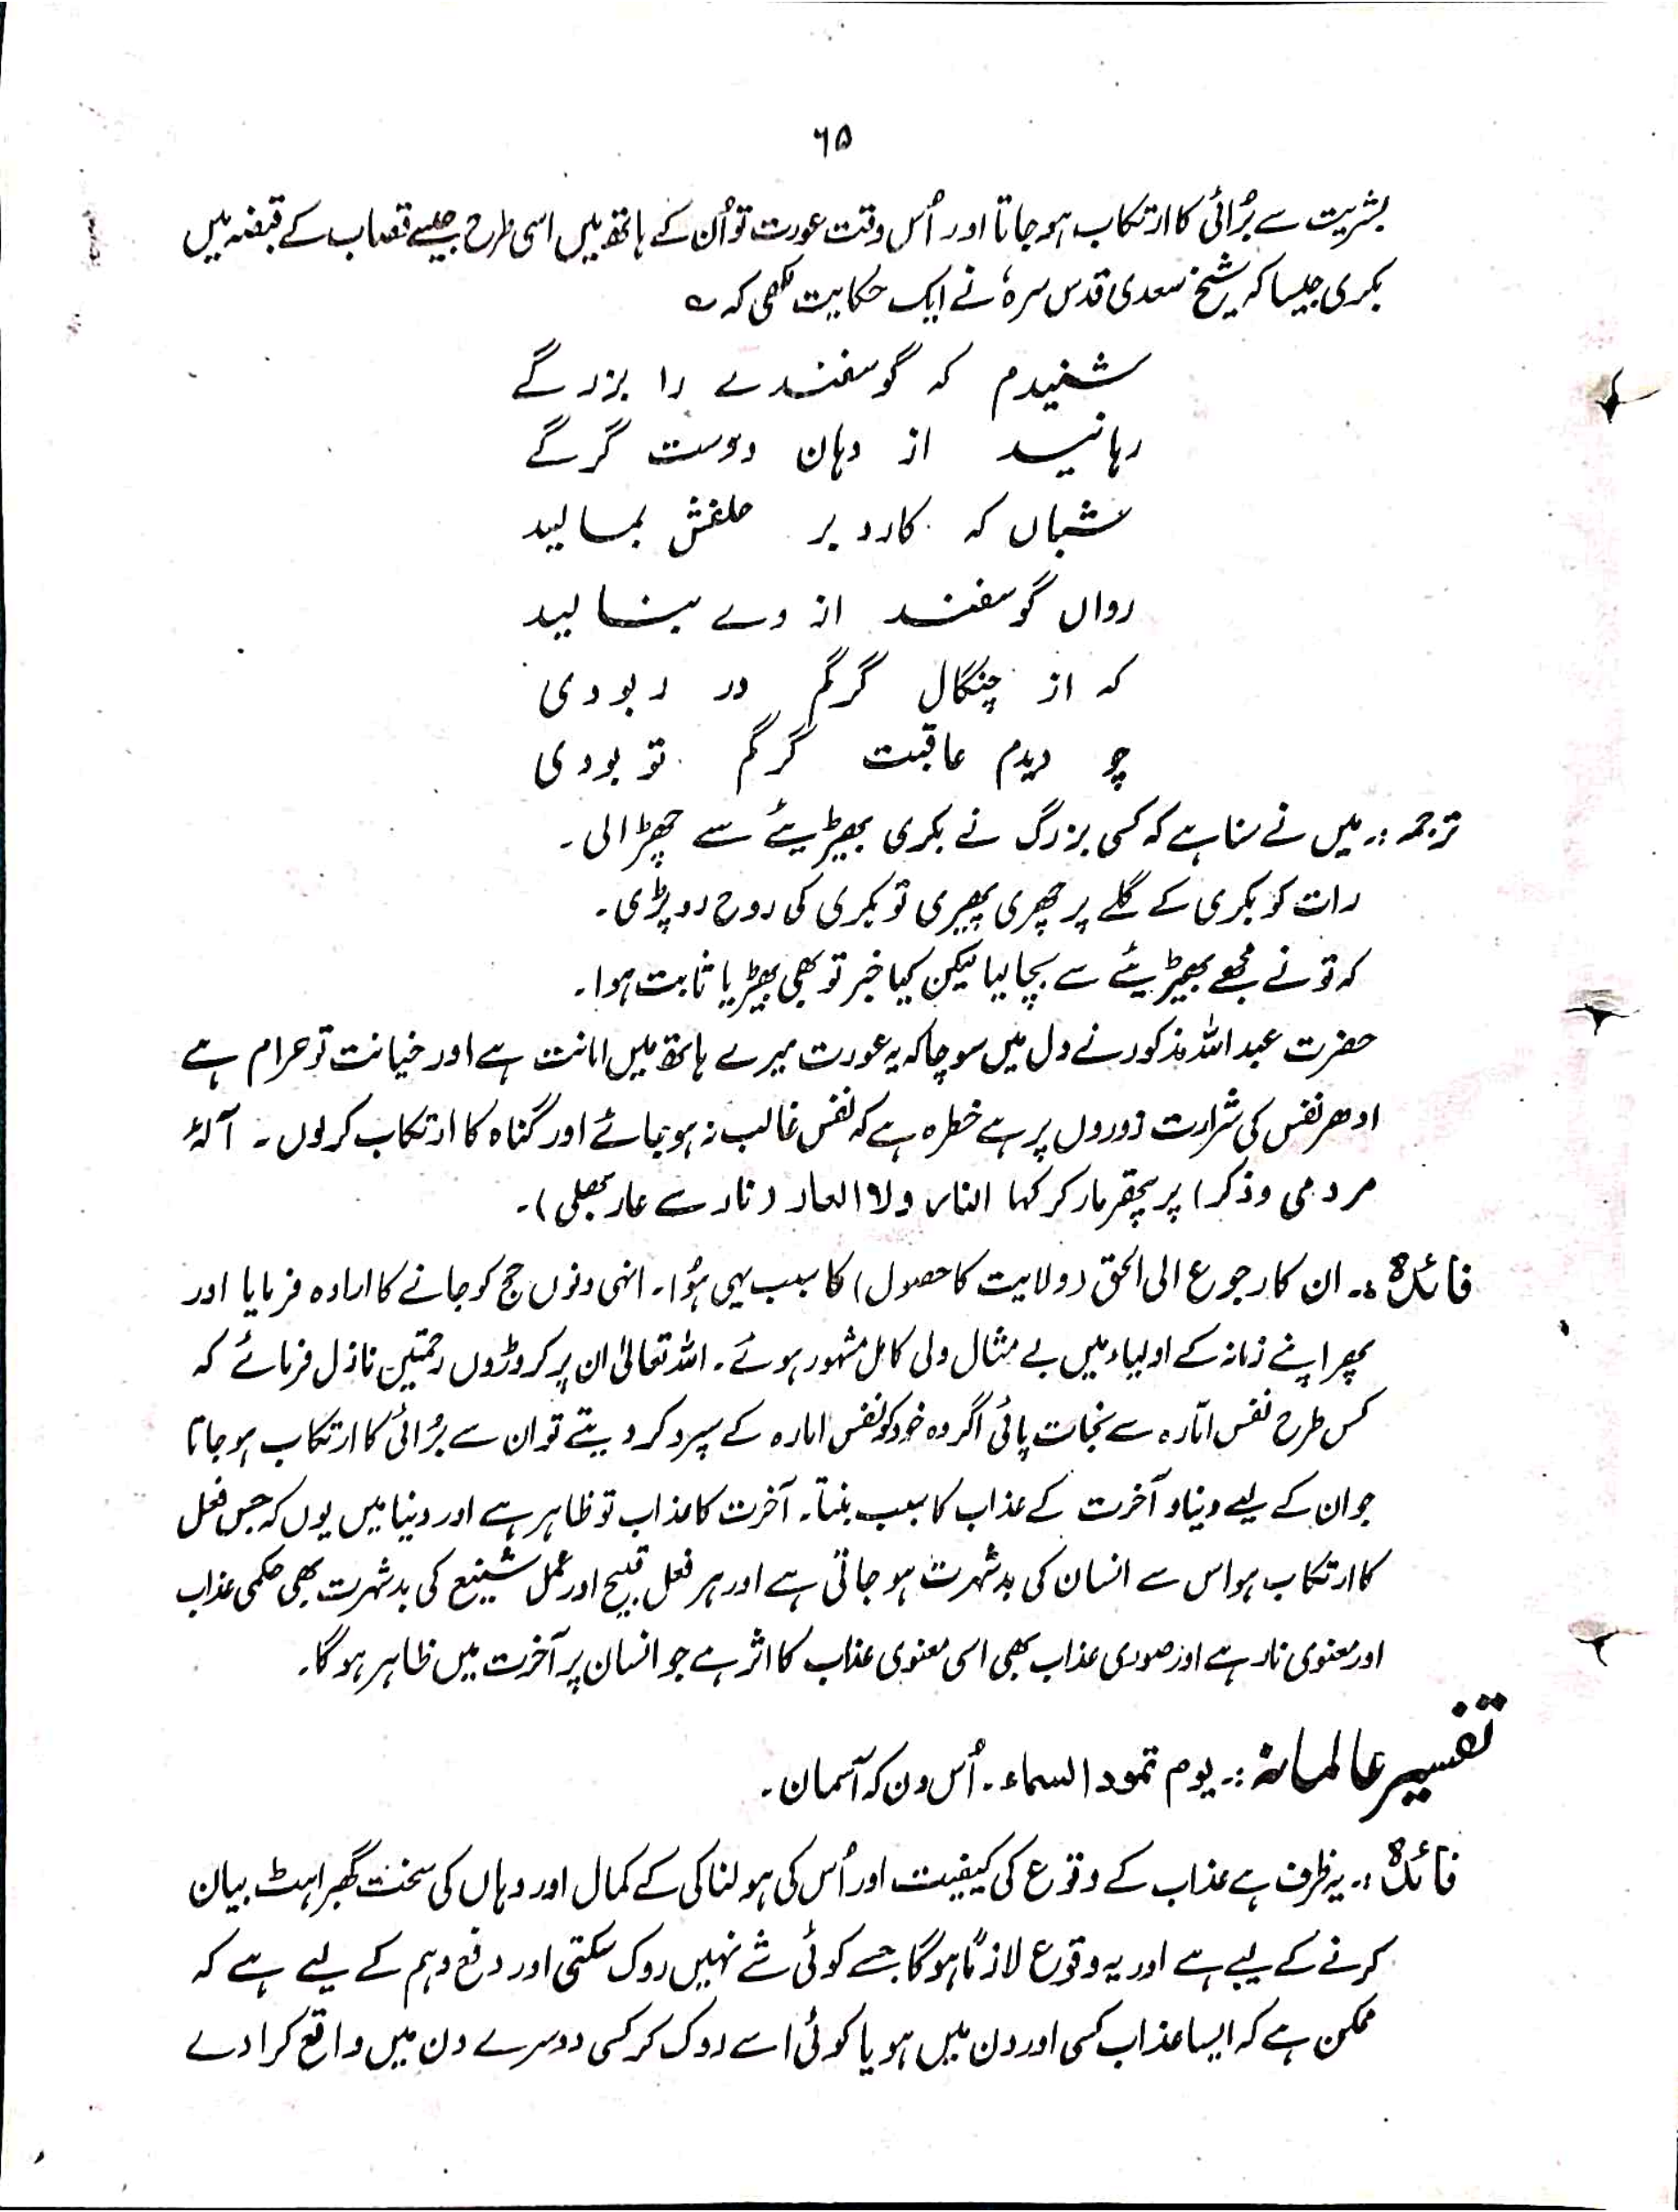 ٦٥
بشریت سے بُرائی کا ارتکاب ہو جاتا اور اُس وقت عورت تو اُن کے ہاتھ میں اسی طرح جیسے قصاب کے قبضہ میں
بکری جیسا کہ شیخ سعدی قدس سرہٗ نے ایک حکایت لکھی کہ ؎
شنیدم کہ گوسفندے را بزرگے
رہانید از دہان دوست گرگے
شباں کہ کارد بر حلقش بمالید
رواں گوسفند از وے بنالید
کہ از چنگال گرگم در ربودی
چو دیدم عاقبت گرگم تو بودی
ترجمہ :۔ میں نے سنا ہے کہ کسی بزرگ نے بکری بھیڑیئے سے چھڑالی ۔
رات کو بکری کے گلے پر چھری پھیری تو بکری کی روح رو پڑی ۔
کہ تو نے مجھے بھیڑیئے سے بچا لیا لیکن کیا خبر تو بھی بھیڑیا ثابت ہوا ۔
حضرت عبداللہ مذکور نے دل میں سوچا کہ یہ عورت میرے ہاتھ میں امانت ہے اور خیانت تو حرام ہے
ادھر نفس کی شرارت زوروں پر ہے خطرہ ہے کہ نفس غالب نہ ہو جائے اور گناہ کا ارتکاب کرلوں ۔ آلۂ
مردمی وذکر) پر پتھر مار کر کہا النار ولا العار (نار سے عار بھلی) ۔
فائدہ :۔ ان کا رجوع الی الحق (ولایت کا حصول) کا سبب یہی ہُوا ۔ انہی دنوں حج کو جانے کا ارادہ فرمایا اور
پھر اپنے زمانہ کے اولیاء میں بے مثال ولی کامل مشہور ہوئے ۔ اللہ تعالیٰ ان پر کروڑوں رحمتیں نازل فرمائے کہ
کس طرح نفس امّارہ سے نجات پائی اگر وہ خود کو نفس امارہ کے سپرد کر دیتے تو ان سے بُرائی کا ارتکاب ہو جاتا
جو ان کے لیے دنیا و آخرت کے عذاب کا سبب بنتا ۔ آخرت کا عذاب تو ظاہر ہے اور دنیا میں یوں کہ جس فعل
کا ارتکاب ہو اس سے انسان کی بدشہرت ہو جاتی ہے اور ہر فعل قبیح اور عمل شنیع کی بدشہرت بھی حکمی عذاب
اور معنوی نار ہے اور صوری عذاب بھی اسی معنوی عذاب کا اثر ہے جو انسان پر آخرت میں ظاہر ہو گا ۔
تفسیر عالمانہ :۔ یوم تمور السماء ۔ اُس دن کہ آسمان ۔
فائدہ :۔ یہ ظرف ہے عذاب کے وقوع کی کیفیت اور اُس کی ہولناکی کے کمال اور وہاں کی سخت گھبراہٹ بیان
کرنے کے لیے ہے اور یہ وقوع لازمًا ہو گا جسے کوئی شے نہیں روک سکتی اور دفع وہم کے لیے ہے کہ
ممکن ہے کہ ایسا عذاب کسی اور دن میں ہو یا کوئی اسے روک کر کسی دوسرے دن میں واقع کرا دے